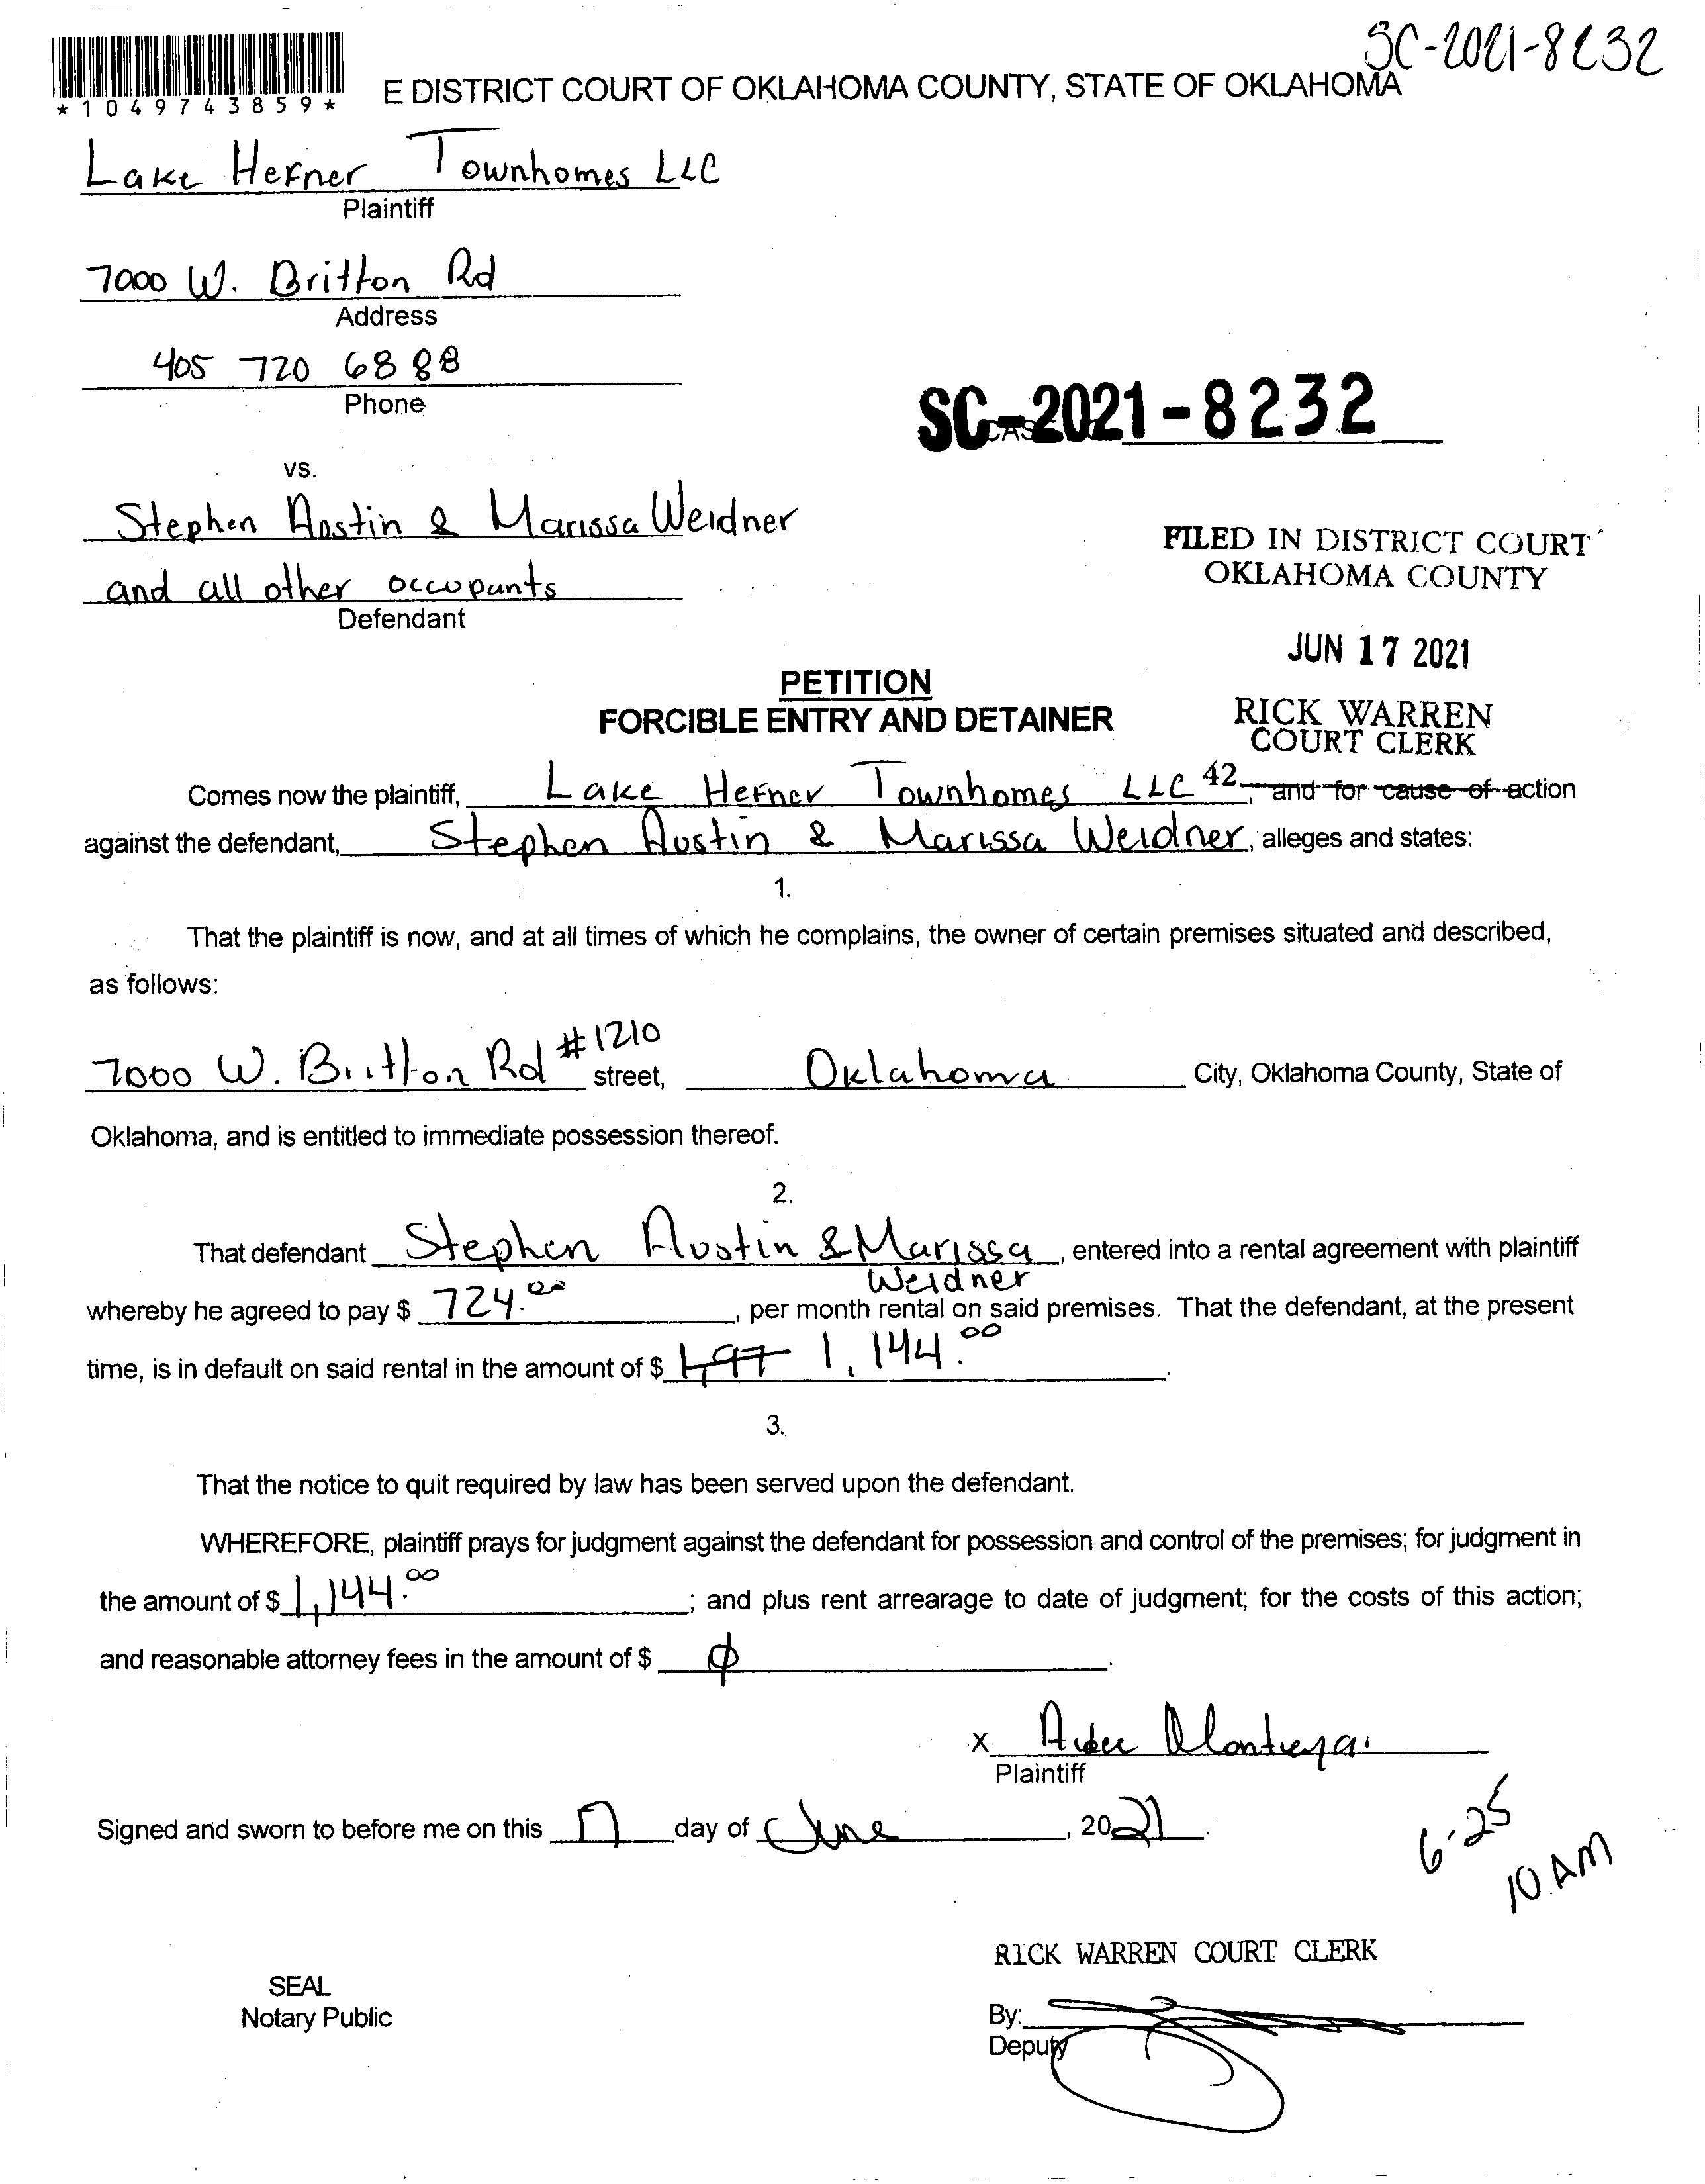 SC-2021-8232
*1049743859*
E DISTRICT COURT OF OKLAHOMA COUNTY, STATE OF OKLAHOMA
Lake Hefner Townhomes LLC
Plaintiff
7000 W. Britton Rd
Address
405 720 6888
Phone
SC-2021-8232
vs.
Stephen Austin & Marissa Weidner
and all other occupants
Defendant
FILED IN DISTRICT COURT
OKLAHOMA COUNTY
JUN 17 2021
RICK WARREN
COURT CLERK
42
PETITION
FORCIBLE ENTRY AND DETAINER
Comes now the plaintiff, Lake Hefner Townhomes LLC, and for cause of action
against the defendant, Stephen Austin & Marissa Weidner, alleges and states:
1.
That the plaintiff is now, and at all times of which he complains, the owner of certain premises situated and described,
as follows:
7000 W. Britton Rd #1210 street, Oklahoma City, Oklahoma County, State of
Oklahoma, and is entitled to immediate possession thereof.
2.
That defendant Stephen Austin & Marissa Weidner, entered into a rental agreement with plaintiff
whereby he agreed to pay $ 724.00, per month rental on said premises. That the defendant, at the present
time, is in default on said rental in the amount of $ 1,144.00.
3.
That the notice to quit required by law has been served upon the defendant.
WHEREFORE, plaintiff prays for judgment against the defendant for possession and control of the premises; for judgment in
the amount of $ 1,144.00; and plus rent arrearage to date of judgment; for the costs of this action;
and reasonable attorney fees in the amount of $ φ.
X
Plaintiff
Signed and sworn to before me on this 17 day of June, 2021.
6-25
10 AM
RICK WARREN COURT CLERK
SEAL
Notary Public
By:
Deputy